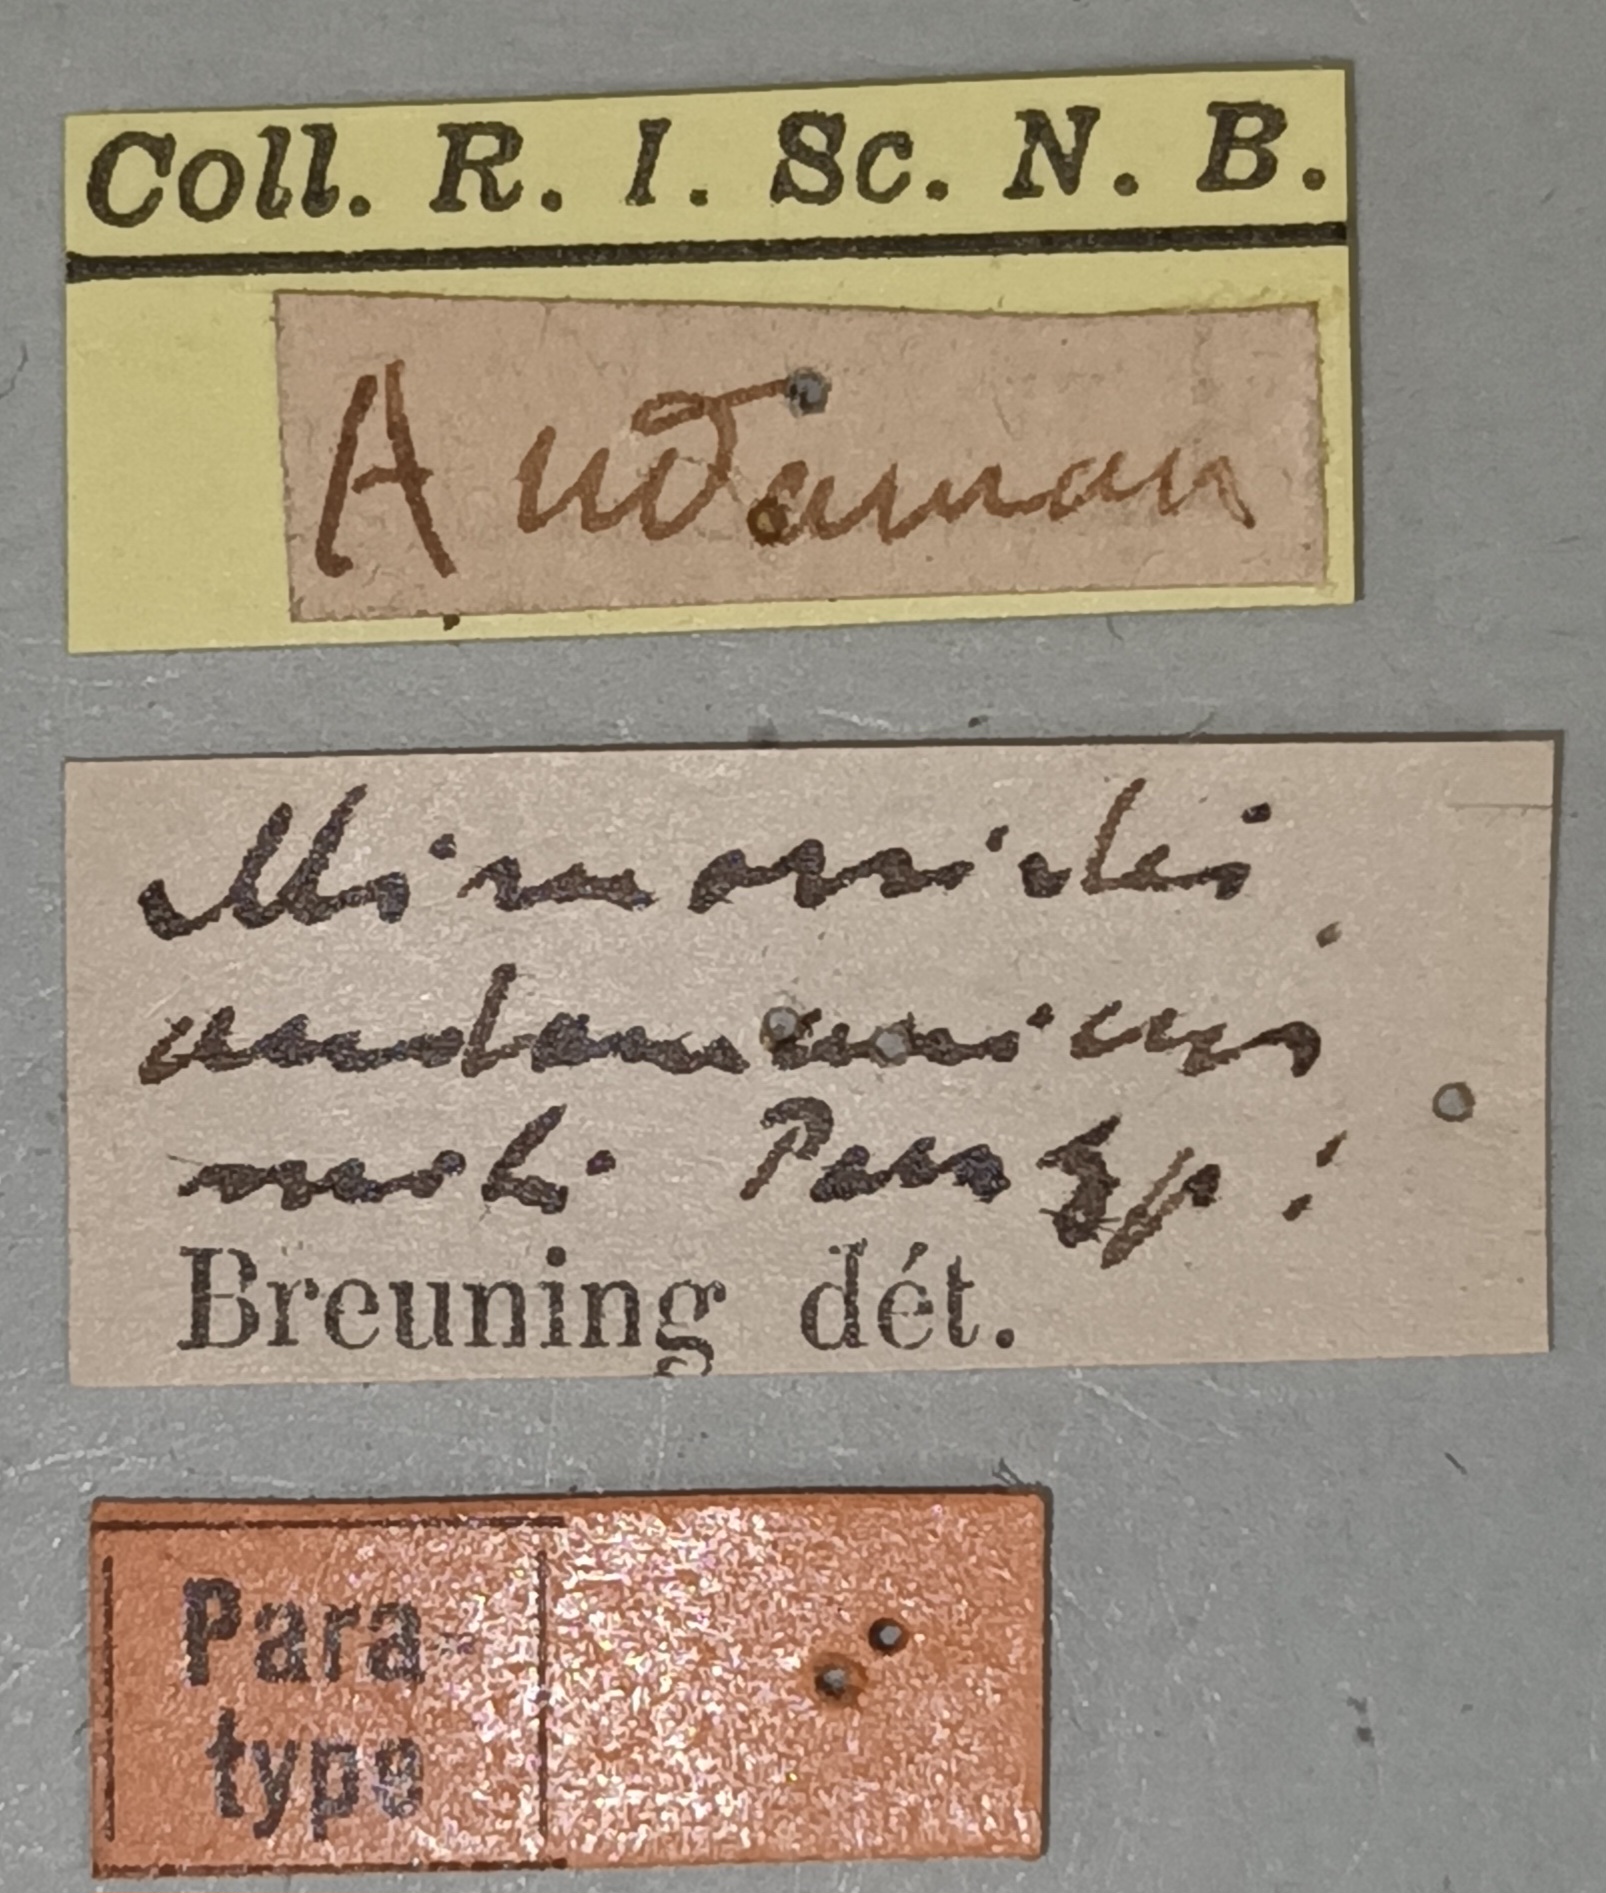 Coll. R. I. Sc. N. B.
Andaman
Mimorsidis
andamanicus
Paratyp!
Breuning dét.
Para-
type